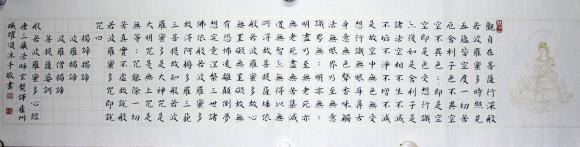 觀自在菩薩行深般
若波羅蜜多時照見
五蘊皆空度一切苦
厄舍利子色不異空
空不異色色即是空
空即是色受想行識
亦復如是舍利子是
諸法空相不生不滅
不垢不淨不增不減
是故空中無色無受
想行識無眼耳鼻舌
身意無色聲香味觸
法無眼界乃至無意
識界無無明亦無無
明盡乃至無老死亦
無老死盡無苦集滅
道無智亦無得以無
所得故菩提薩埵依
般若波羅蜜多故心
無罣礙無罣礙故無
有恐怖遠離顛倒夢
想究竟涅槃三世諸
佛依般若波羅蜜多
故得阿耨多羅三藐
三菩提故知般若波
羅蜜多是大神咒是
大明咒是無上咒是
無等等咒能除一切
苦真實不虛故說般
若波羅蜜多咒即說
咒曰
揭諦揭諦
波羅揭諦
波羅僧揭諦
菩提薩婆訶
般若波羅蜜多心經
唐三藏法師玄奘譯
沐手敬書